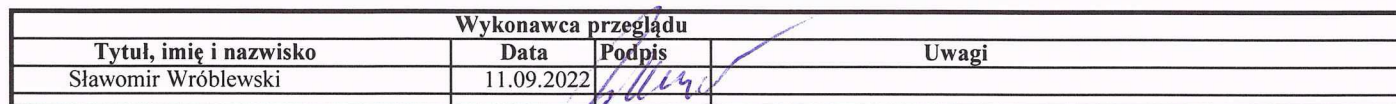 Wykonawca przeglądu
Tytuł, imię i nazwisko Data Podpis Uwagi
Sławomir Wróblewski 11.09.2022